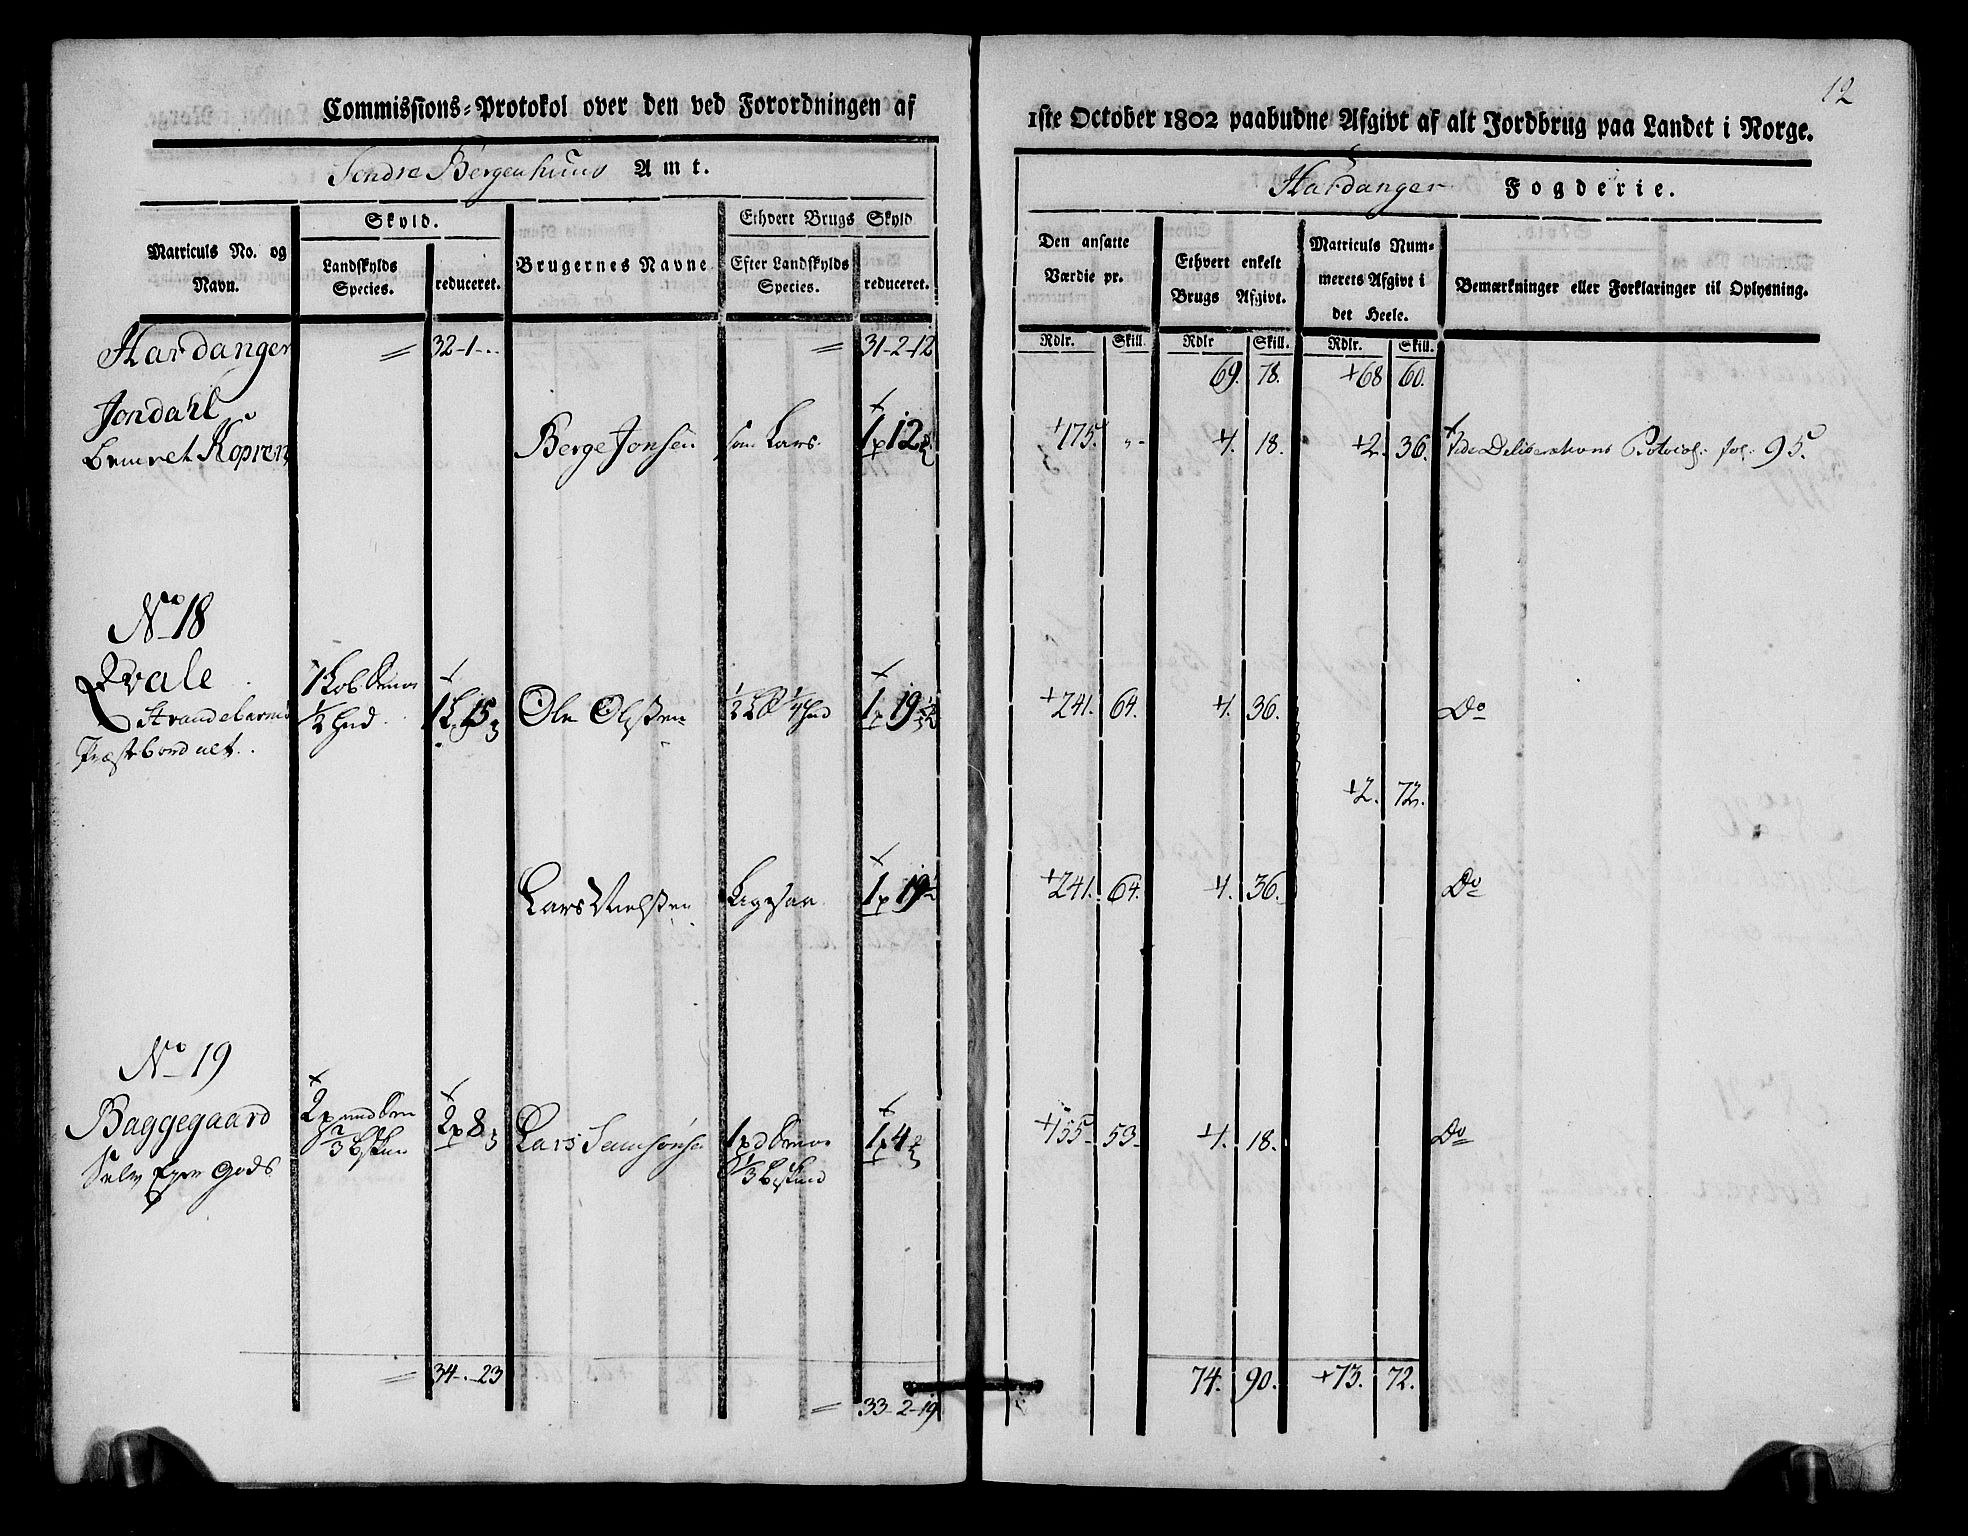 12
Commissions-Protokol over den ved Forordningen af
1ste October 1802 paabudne Afgivt af alt Jordbrug paa Landet i Norge.
Søndre Bergenhuus Amt.
Hardanger Fogderie.
Matriculs No. og Navn.
Skyld.
Landskylds Species.
reduceret.
Brugernes Navne
Ethvert Brugs Skyld
Efter Landskylds Species.
reduceret.
Den ansatte Værdie pr.
Ethvert enkelt Brugs Afgivt.
Matriculs Nummerets Afgivt i det Heele.
Bemærkninger eller Forklaringer til Oplysning.
Rdlr. Skill. Rdlr Skill. Rdlr. Skill.
Hardanger = 32-1-.. = 31-2-12 69. 78. +68 60.
Jondahl
Berge Jonsen som Lars 1p 12 +175. „- +1. 18. +2. 36. Vide Deliberations Protocol fol. 95.
No 18
Qvale
1 Løb Smør
½ Hud 1L 15 Ole Olsen ½ Løb ¼ Hud 1p 19½ +241. 64. +1. 36. Do
Strandebarms
Præstebord alt.
+2. 72.
Lars Nielsen Ligesaa 1p 19½ +241. 64. +1. 36. Do
No 19
Baggegaard 2 pund Smør 2p 8 Lars Samsonsen 1 pd Smør 1p 4 +155- 53- +1. 18. Do
Selv Eyer Gods
= 34-.-23 74. 90. +73. 72.
= 33-2-19